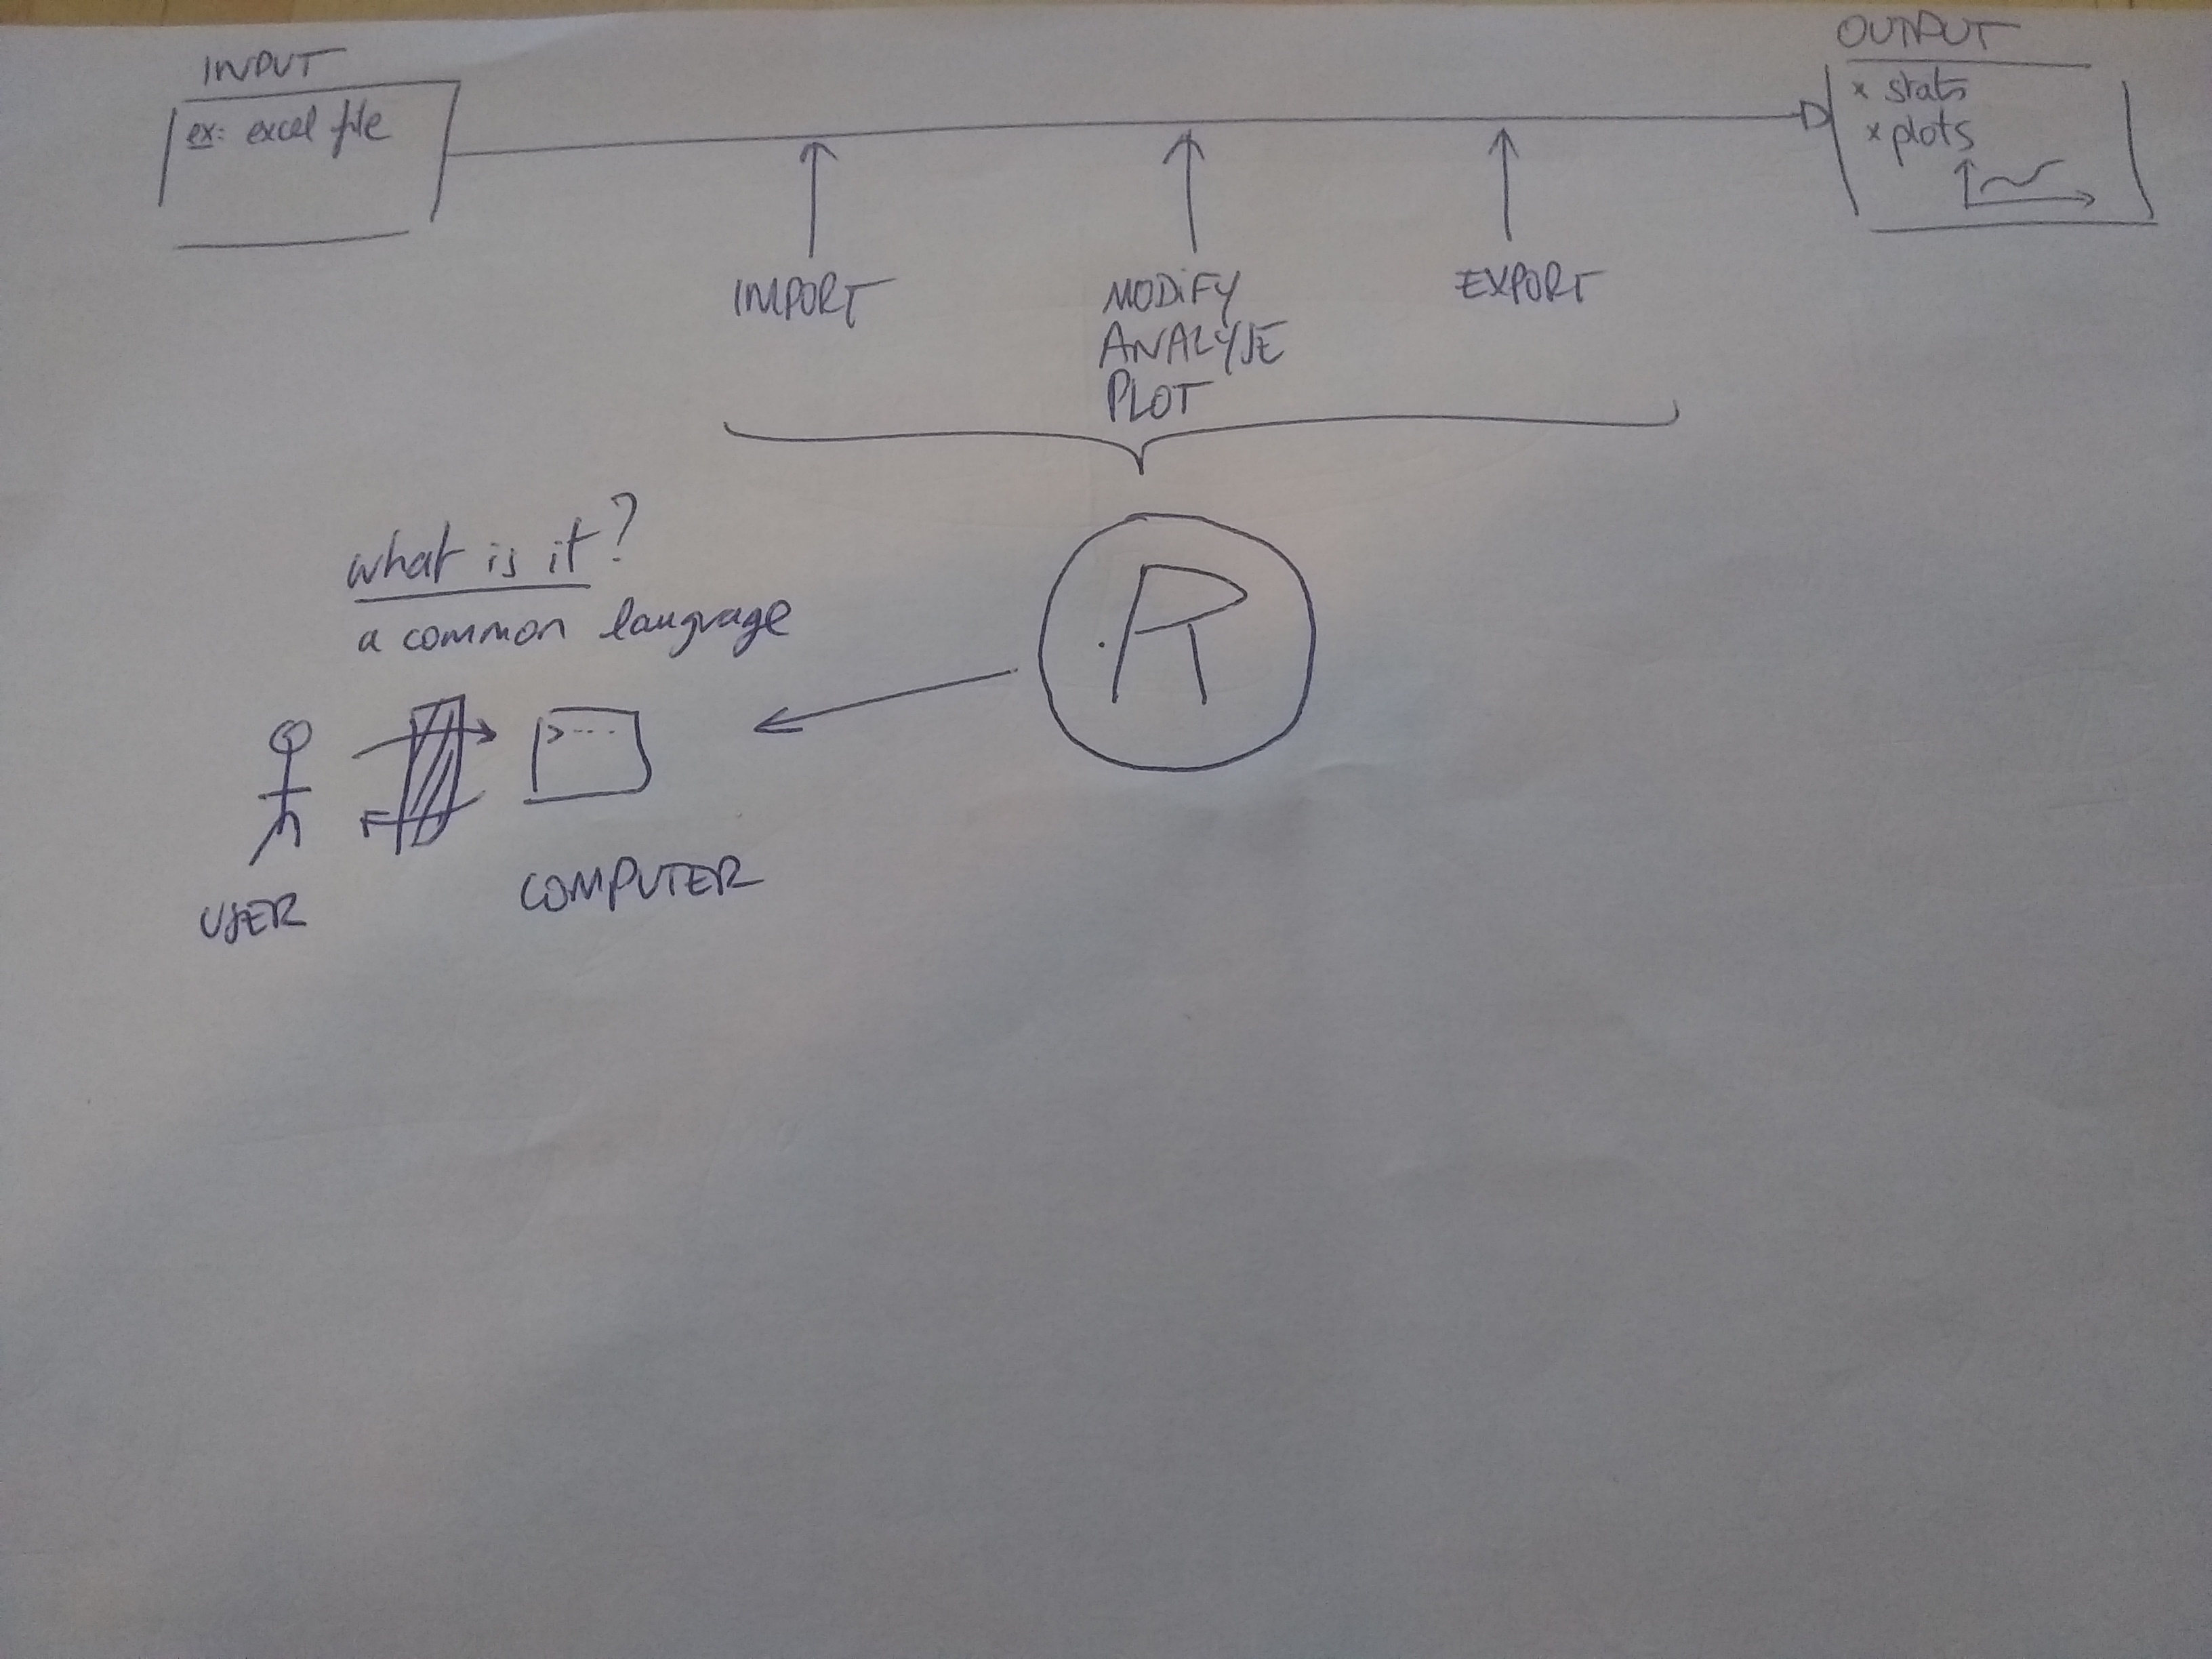 INPUT
ex: excel file
OUTPUT
x stats
x plots
IMPORT
MODIFY
ANALYSE
PLOT
EXPORT
what is it?
a common language
R
>---
USER
COMPUTER